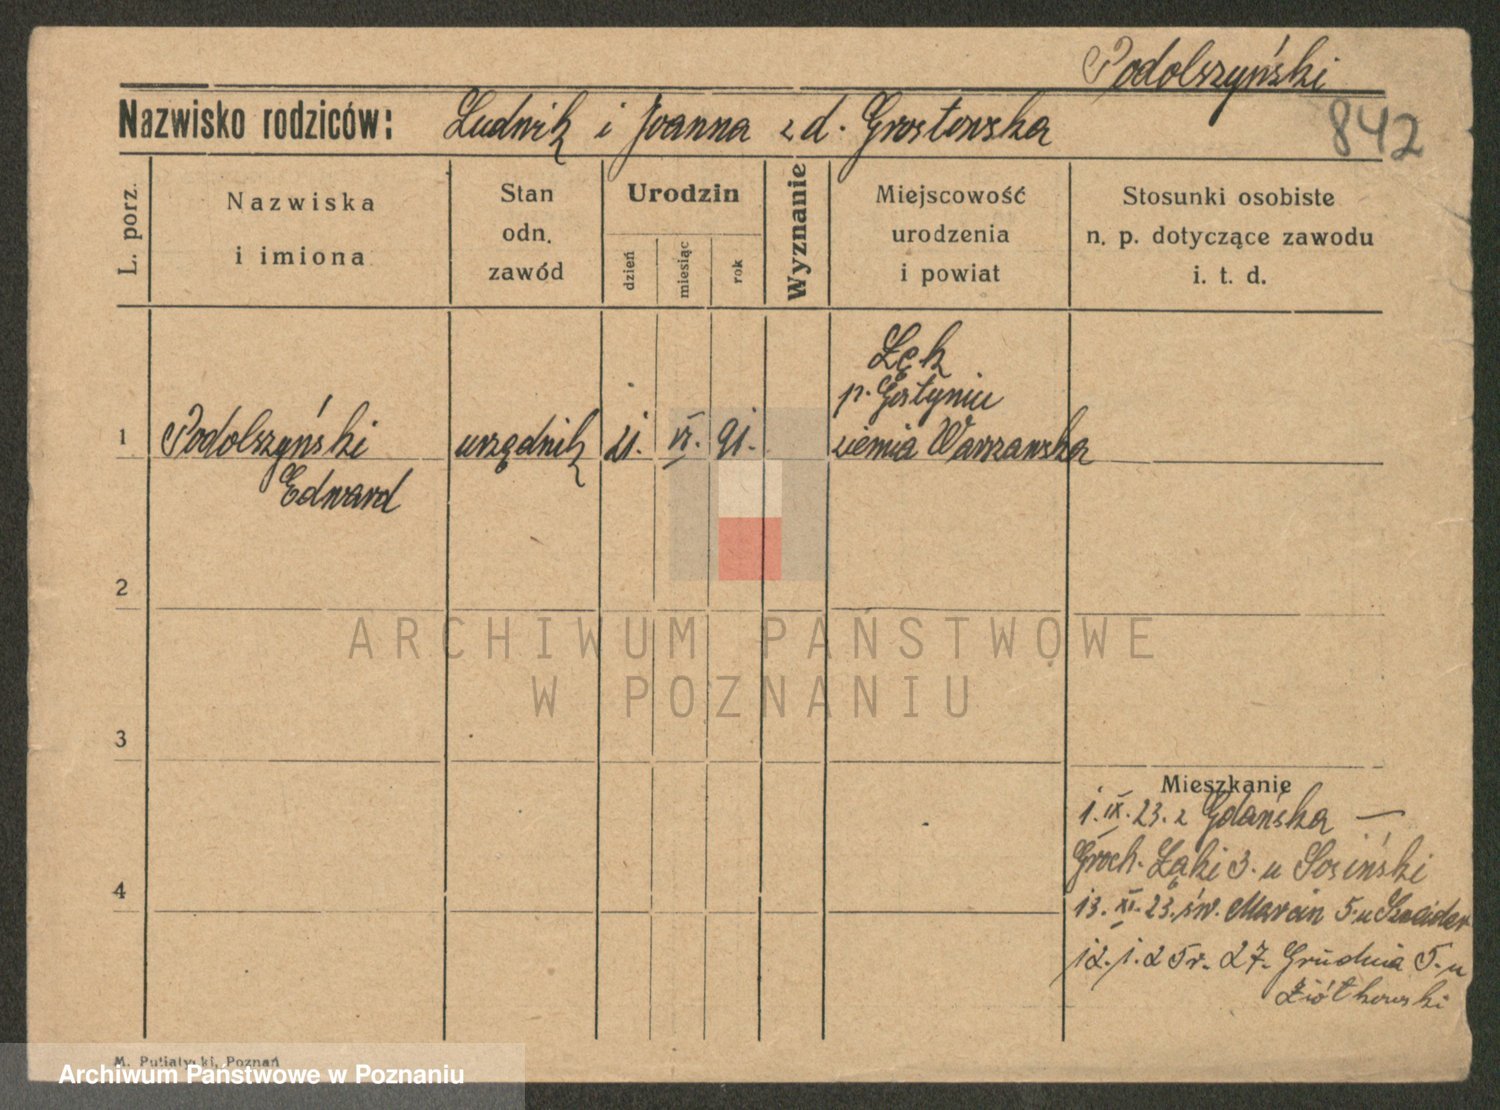 Podolszyński
Nazwisko rodziców: Ludwik i Joanna z d. Grostowska
842
L. porz.
Nazwiska
i imiona
Stan
odn.
zawód
Urodzin
dzień
miesiąc
rok
Wyznanie
Miejscowość
urodzenia
i powiat
Stosunki osobiste
n. p. dotyczące zawodu
i. t. d.
Łęk
p. Gostyniu
1 Podolszyński urzędnik 21. VI. 91. ziemia Warszawska
Edward
2
ARCHIWUM PAŃSTWOWE
W POZNANIU
3
Mieszkanie
1. IX. 23. z Gdańska —
Groch. Łąki 3. u Sosiński
4
13. XI. 23. św. Marcin 5. u
12. 1. 25 r. 27. Grudnia 5. u
Ziółkowski
M. Putiatycki, Poznań
Archiwum Państwowe w Poznaniu